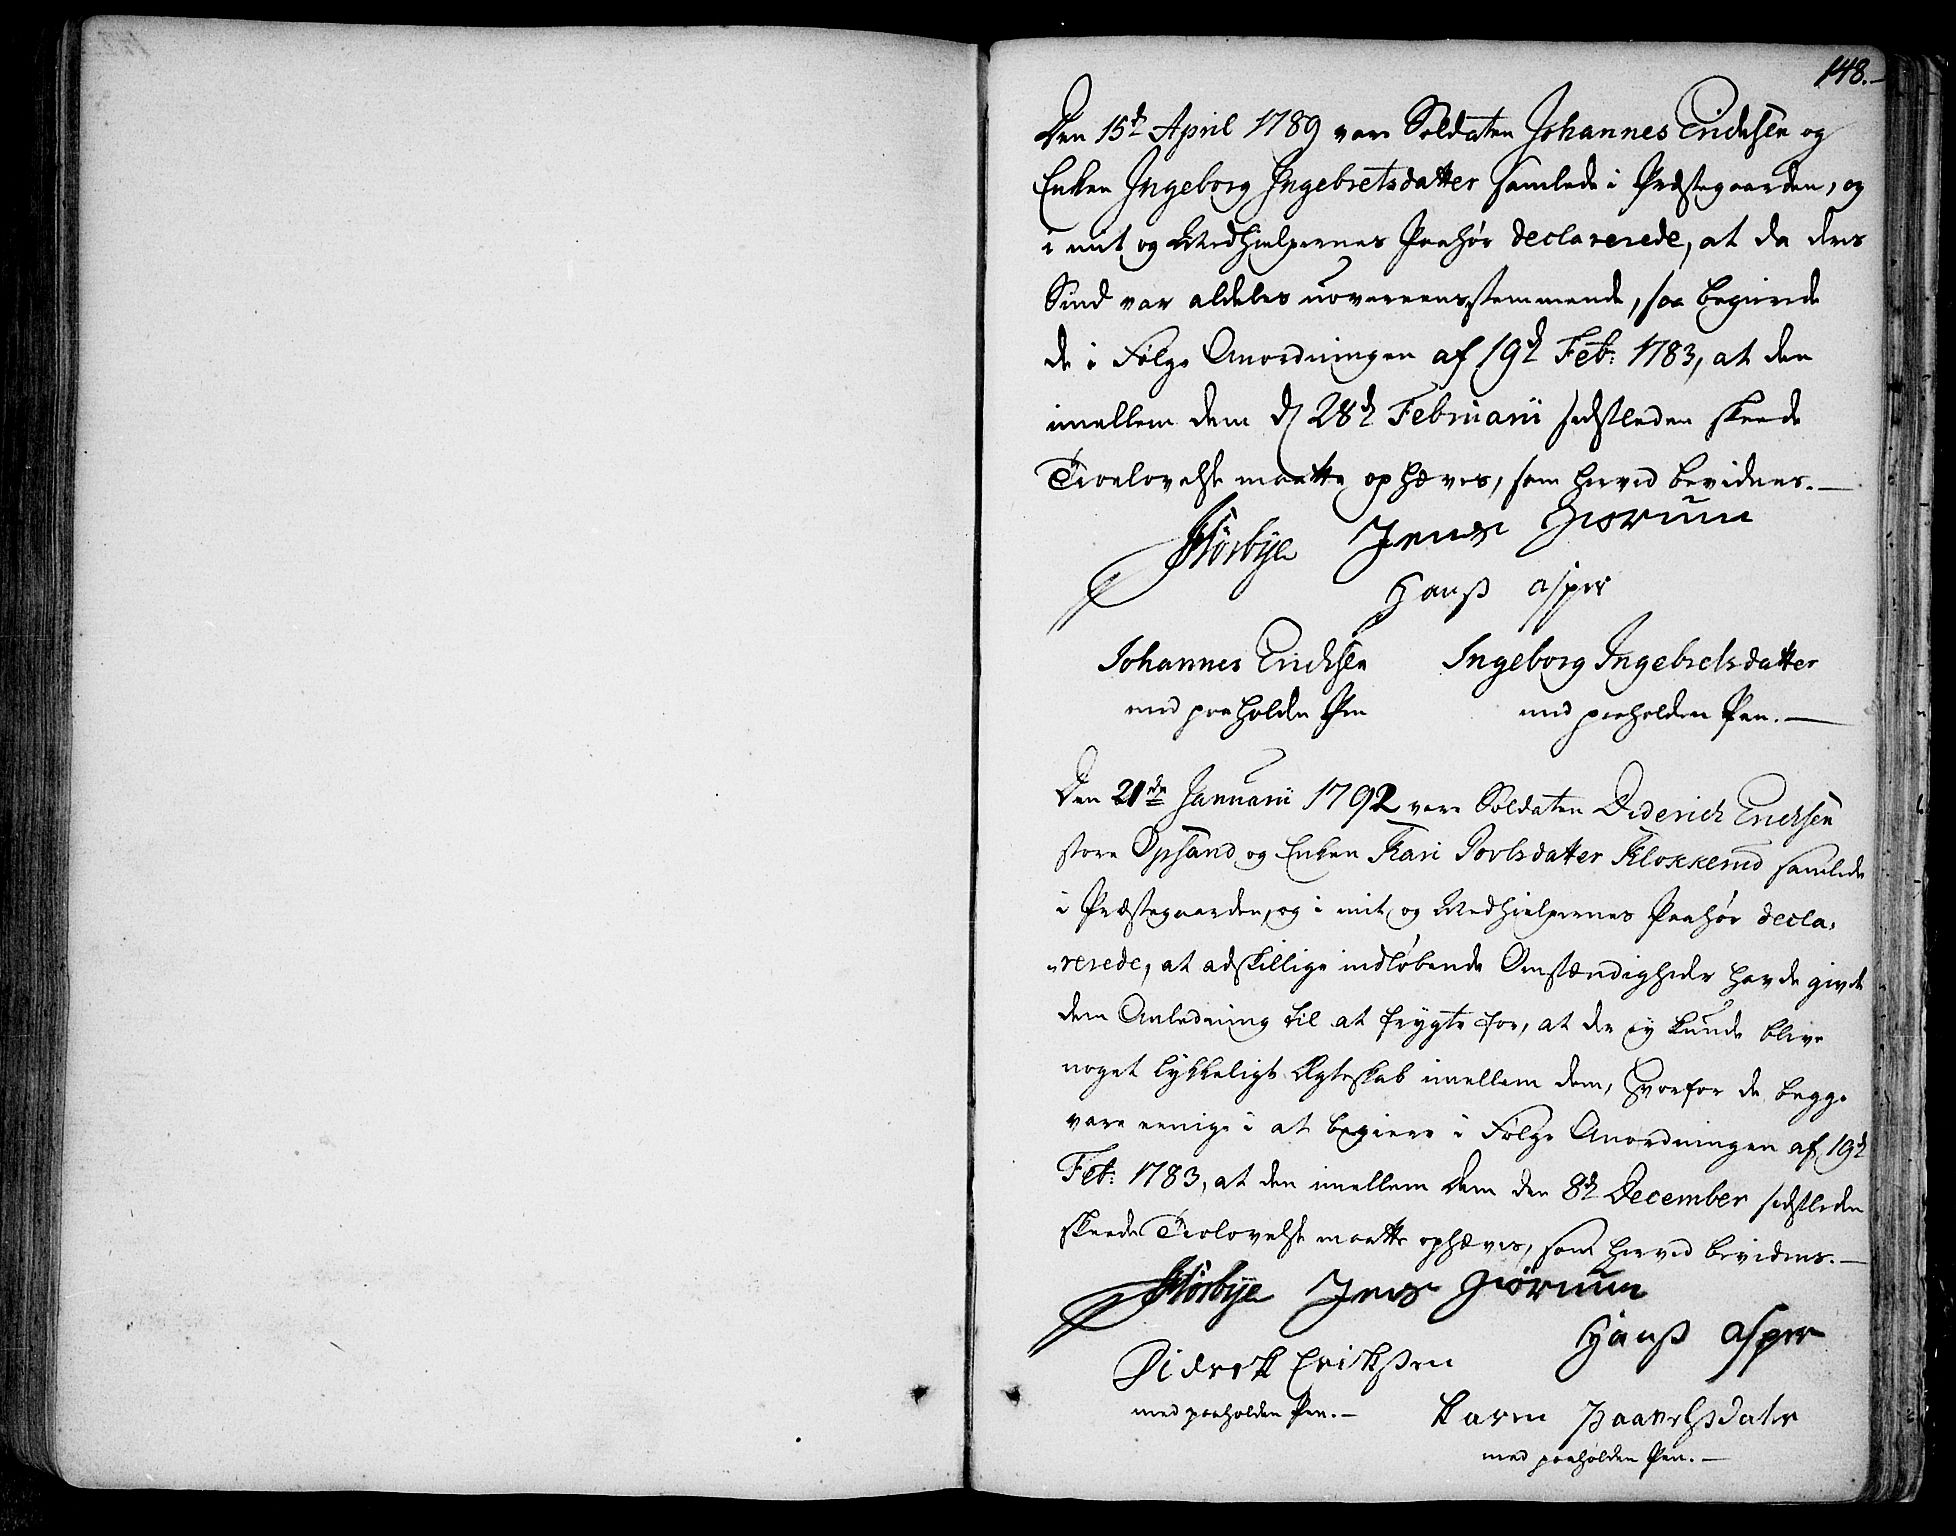 148.
Den 15de April 1789 vare Soldaten Johannes Erichsen og
Enken Ingeborg Ingebretsdatter samlede i Præstegaarden, og
i mit og Medhielpernes Paahør declarerede, at da deres
Sind var aldeles uovereensstemmende, saa begierede
de i Følge Anordningen af 19de Feb: 1783, at den
imellem dem d 28de Februarii sidstleden skeede
Troelovelse maatte ophæves, som herved bevidnes.
Jens Giørum
Hanss asper
Johannes Erichsen Ingeborg Ingebretsdatter
med paaholden Pen med paaholden Pen.
Den 21de Januarii 1792 vare Soldaten Diderich Erichsen
store Opsand og Enken Kari Povlsdatter Klokkerud samlede
i Præstegaarden, og i mit og Medhielpernes Paahør decla-
-rerede, at adskillige indløbende Omstændigheder havde givet
dem Anledning til at frygte for, at der ey kunde blive
noget lykkeligt Ægteskab imellem dem, hvorfor de begge
vare eenige i at begiere i Følge Anordningen af 19de
Feb: 1783, at den imellem dem den 8de December sidstleden
skeede Trolovelse maatte ophæves, som herved bevidnes.
Jens Giørum
Hanss asper
Didrick Erickssen
med paaholden Pen.
Karen
med paaholden Pen.